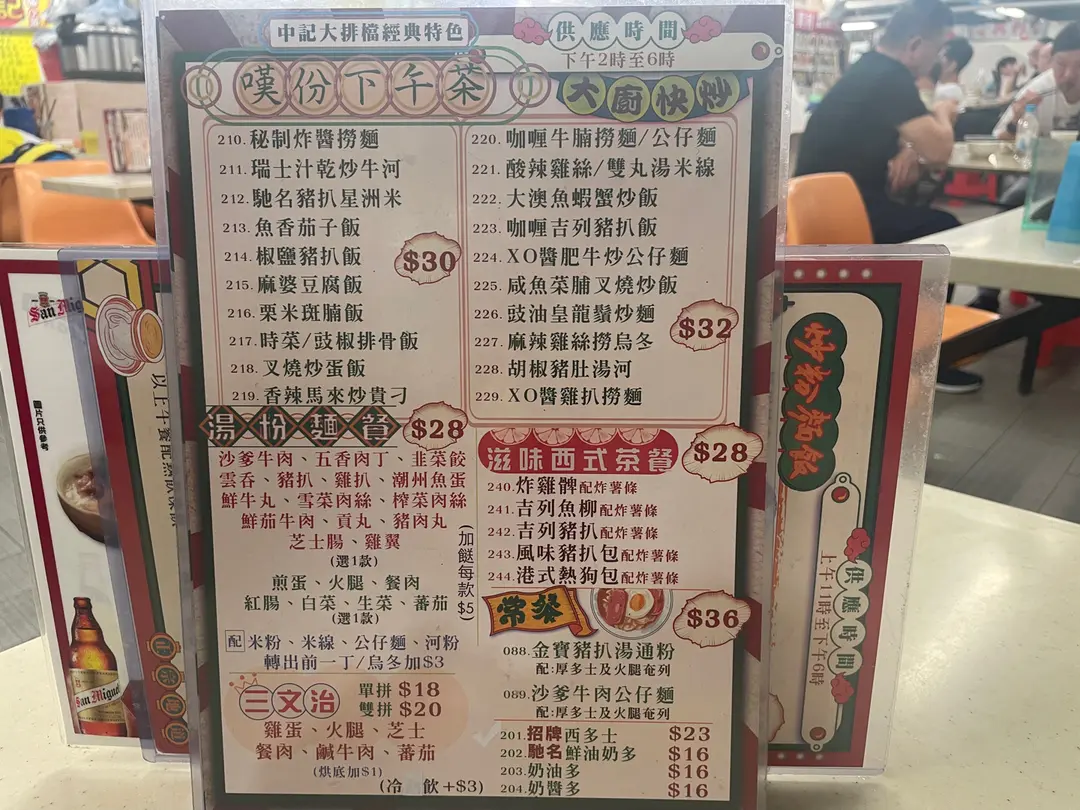 中記大排檔經典特色
供應時間
下午2時至6時
嘆份下午茶
大廚快炒
210.秘制炸醬撈麵
211.瑞士汁乾炒牛河
212.馳名豬扒星洲米
213.魚香茄子飯
214.椒鹽豬扒飯
215.麻婆豆腐飯
216.粟米斑腩飯
217.時菜/豉椒排骨飯
218.叉燒炒蛋飯
219.香辣馬來炒貴刁
$30
220.咖喱牛腩撈麵/公仔麵
221.酸辣雞絲/雙丸湯米線
222.大澳魚蝦蟹炒飯
223.咖喱吉列豬扒飯
224.XO醬肥牛炒公仔麵
225.咸魚菜脯叉燒炒飯
226.豉油皇龍鬚炒麵
227.麻辣雞絲撈烏冬
228.胡椒豬肚湯河
229.XO醬雞扒撈麵
$32
湯粉麵餐
$28
沙爹牛肉、五香肉丁、韭菜餃
雲吞、豬扒、雞扒、潮州魚蛋
鮮牛丸、雪菜肉絲、榨菜肉絲
鮮茄牛肉、貢丸、豬肉丸
芝士腸、雞翼
(選1款)
煎蛋、火腿、餐肉
紅腸、白菜、生菜、蕃茄
(選1款)
(加餸每款$5)
配 米粉、米線、公仔麵、河粉
轉出前一丁/烏冬加$3
三文治
單拼 $18
雙拼 $20
雞蛋、火腿、芝士
餐肉、鹹牛肉、蕃茄
(烘底加$1)
(冷 飲+$3)
滋味西式茶餐
$28
240.炸雞髀配炸薯條
241.吉列魚柳配炸薯條
242.吉列豬扒配炸薯條
243.風味豬扒包配炸薯條
244.港式熱狗包配炸薯條
常餐
$36
088.金寶豬扒湯通粉
配:厚多士及火腿奄列
089.沙爹牛肉公仔麵
配:厚多士及火腿奄列
201.招牌西多士 $23
202.馳名鮮油奶多 $16
203.奶油多 $16
204.奶醬多 $16
San Mig
圖片只供參考
San Miguel
炒粉麵飯
供應時間
上午11時至下午6時